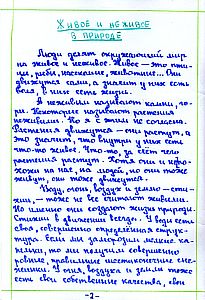 Живое и неживое
в природе
Люди делят окружающий мир
на живое и неживое. Живое — это пти-
цы, рыбы, насекомые, животные... Они
движутся сами, а значит у них есть
воля, в них есть жизнь.
А неживым называют камни, го-
ры. Некоторые называют растения
неживыми. Но я с этим не согласен.
Растения движутся — они растут, а
это значит, что внутри у них есть
что-то такое, за счёт чего
растения растут. Хотя они и непо-
хожи на нас, на людей, но они тоже
живут, они тоже движутся.
Воду, огонь, воздух и землю — сти-
хии, — тоже не считают живыми.
Но именно они создают жизнь природы.
Стихии в движении всегда. У воды есть
своя, совершенно определённая струк-
тура. Если мы заморозим мелкие ка-
пельки, то мы получим совершенно
ровные, правильные шестиконечные сне-
жинки. У огня, воздуха и земли тоже
есть свои собственные качества, свои
-2-